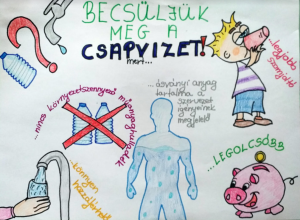 BECSÜLJÜK
MEG A
CSAPVIZET!
mert...
...legjobb
szomjoltó
...nincs környezetszennyező műanyaghulladék
...ásványi anyag
tartalma a
szervezet
igényeinek
megfelel!
...könnyen
hozzáférhető
...LEGOLCSÓBB